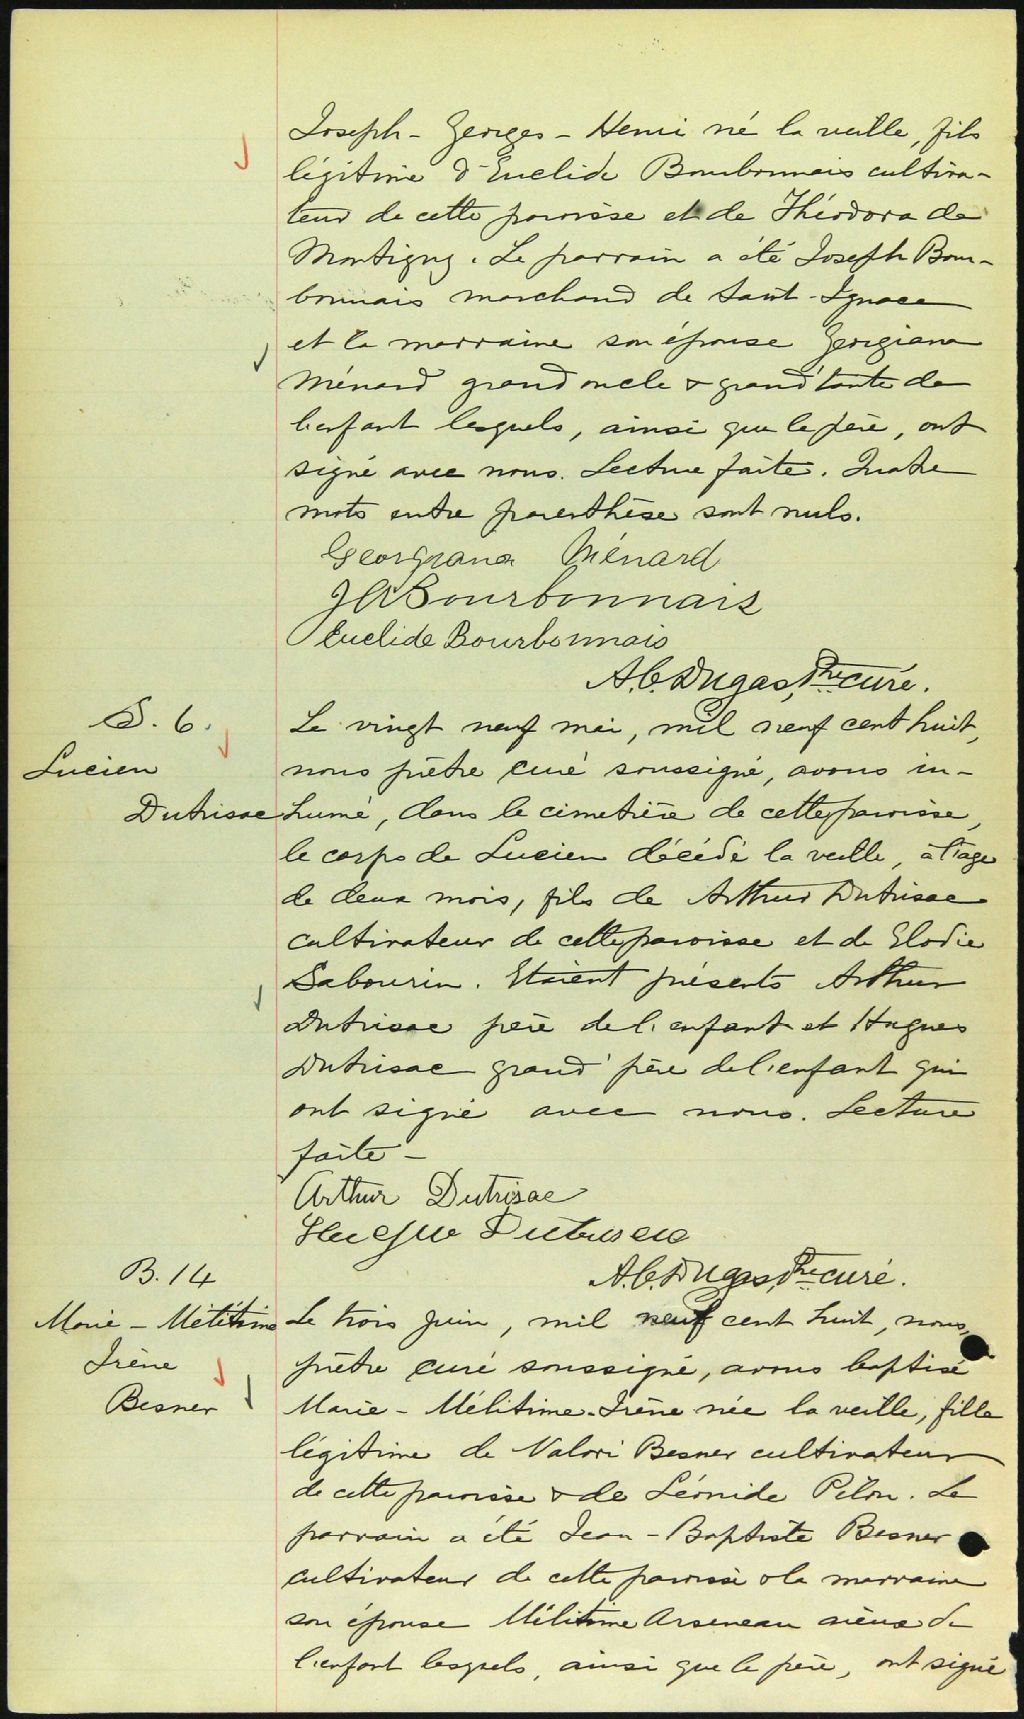 Joseph-Georges-Henri né la veille, fils
légitime d'Euclide Bourbonnais cultiva-
teur de cette paroisse et de Théodora de
Montigny. Le parrain a été Joseph Bour-
bonnais marchand de Saint-Ignace
et la marraine son épouse Georgiana
Ménard grand oncle & grand'tante de
l'enfant lesquels, ainsi que le père, ont
signé avec nous. Lecture faite. Quatre
mots entre parenthèse sont nuls.
Georgiana Ménard
J A Bourbonnais
Euclide Bourbonnais
A.C. Dugas, Ptre curé.
S. 6.
Lucien
Dutrisac
Le vingt neuf mai, mil neuf cent huit,
nous prêtre curé soussigné, avons in-
humé, dans le cimetière de cette paroisse,
le corps de Lucien décédé la veille, à l'âge
de deux mois, fils de Arthur Dutrisac
cultivateur de cette paroisse et de Elodie
Sabourin. Etaient présents Arthur
Dutrisac père de l'enfant et Hugues
Dutrisac grand'père de l'enfant qui
ont signé avec nous. Lecture
faite -
Arthur Dutrisac
A.C. Dugas, Ptre curé.
B. 14
Marie-Mélitime
Irène
Besner
Le trois juin, mil neuf cent huit, nous,
prêtre curé soussigné, avons baptisé
Marie-Mélitime-Irène née la veille, fille
légitime de Valori Besner cultivateur
de cette paroisse & de Léonide Pilon. Le
parrain a été Jean-Baptiste Besner
cultivateur de cette paroisse & la marraine
son épouse Mélitime Arseneau aïeux de
l'enfant lesquels, ainsi que le père, ont signé